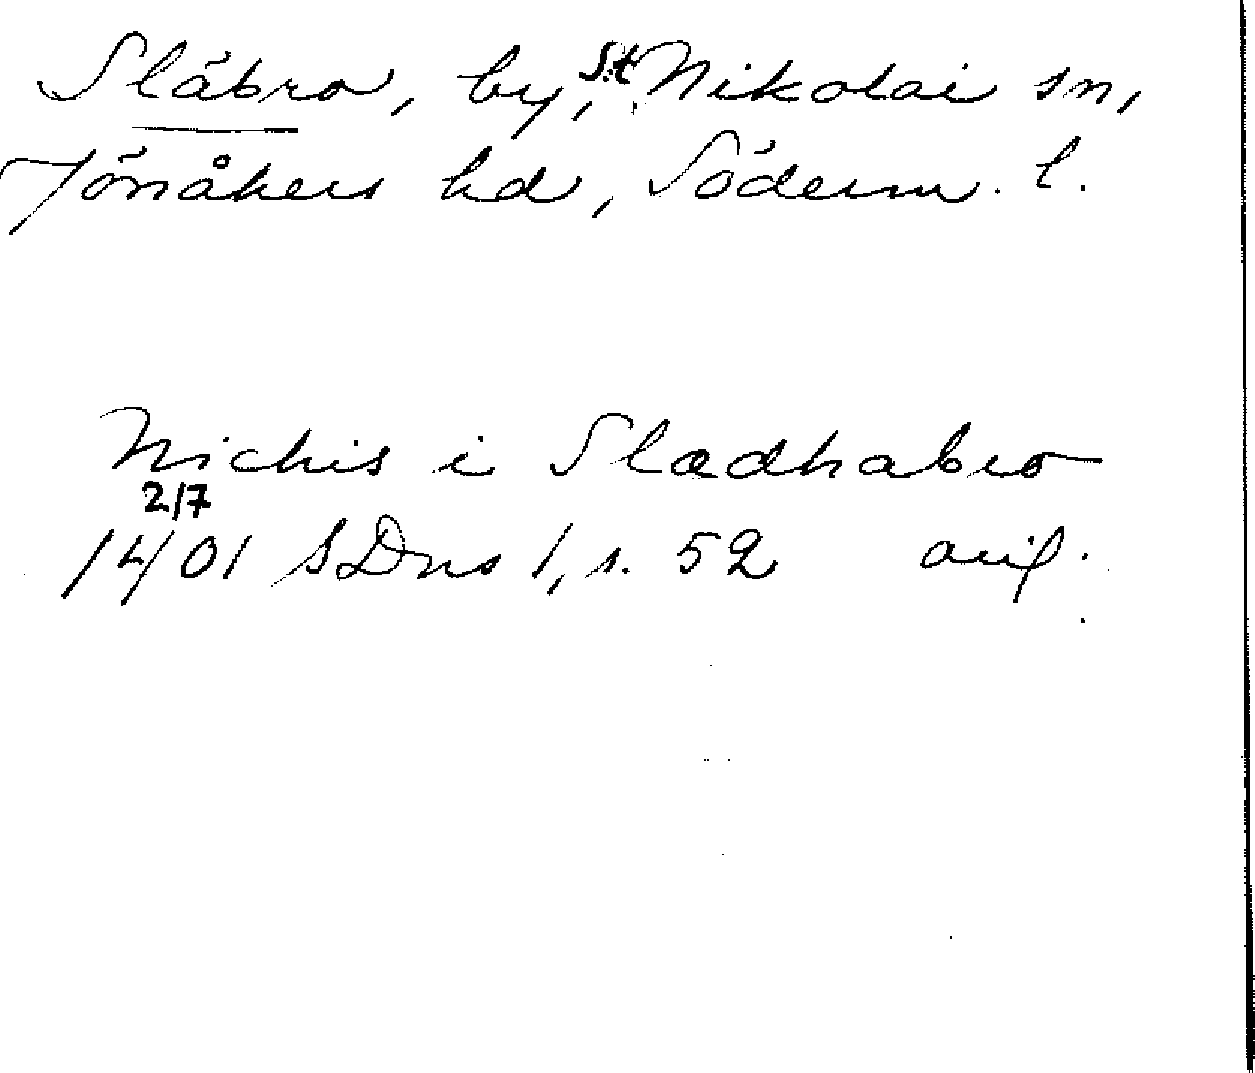 Släbro, by, St Nikolai sn,
Jönåkers hd, Söderm. l.
Nickis i Slædhabro
2/7
1401 SDns 1, s. 52 avs.